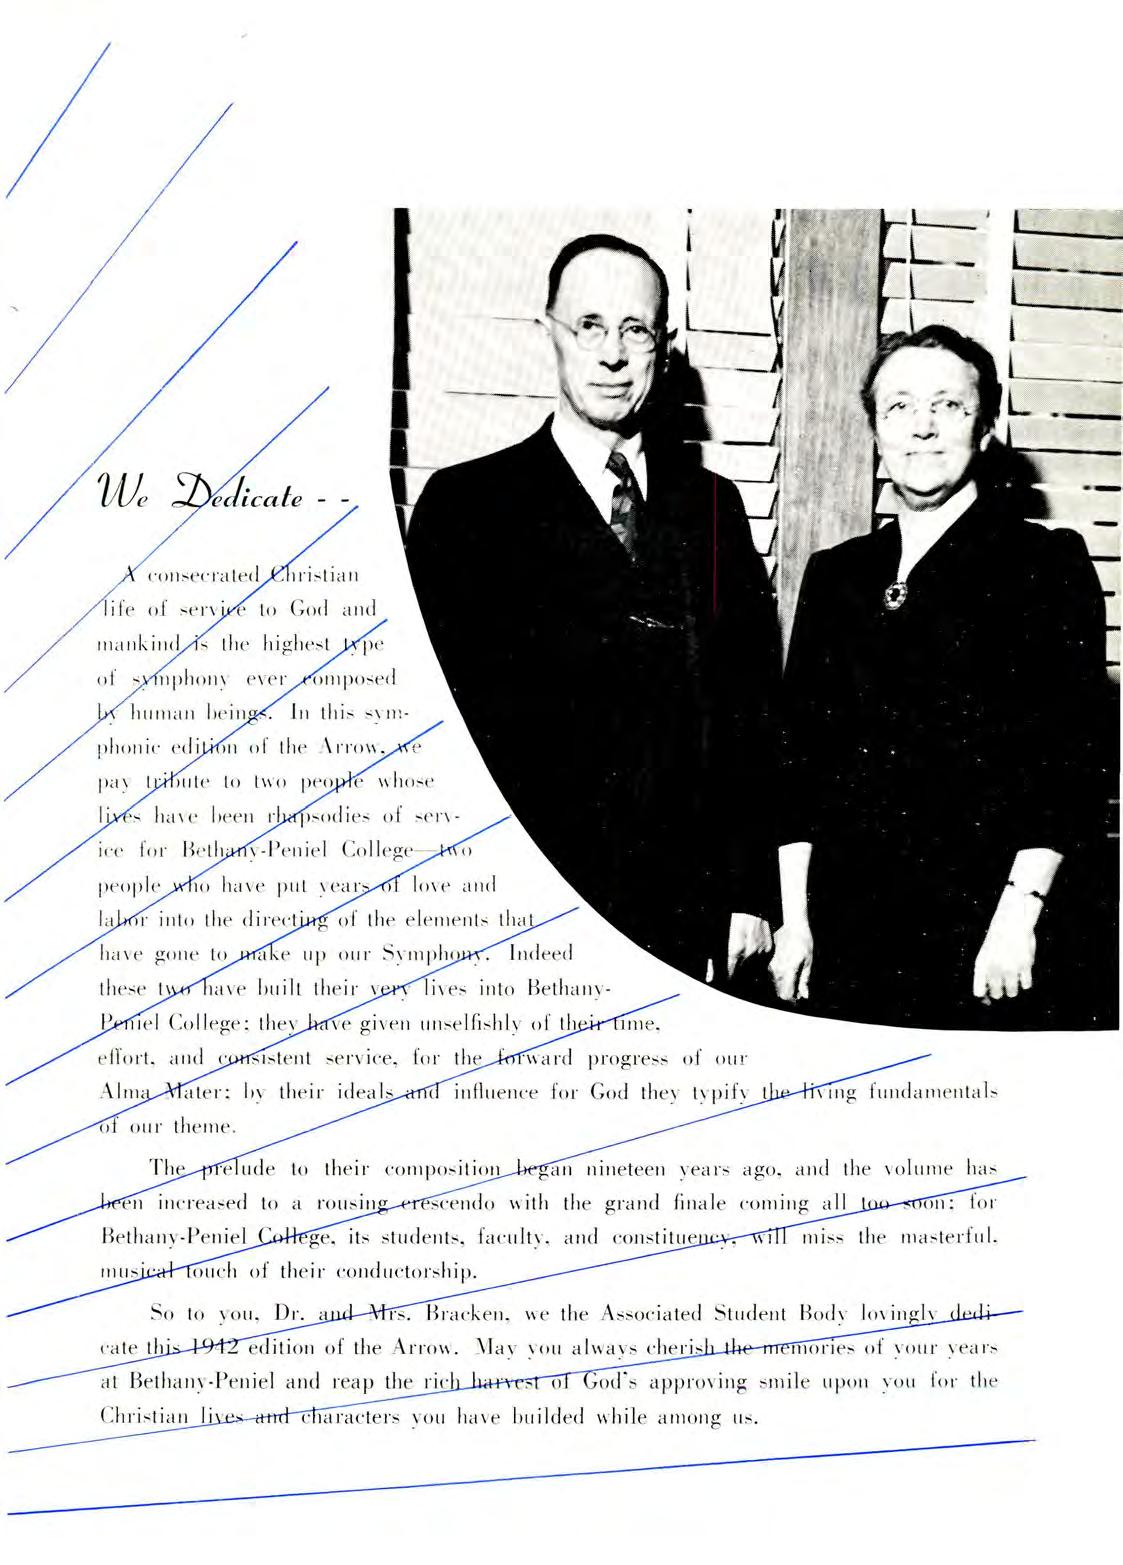 We Dedicate - -
A consecrated Christian
life of service to God and
mankind is the highest type
of symphony ever composed
by human beings. In this sym-
phonic edition of the Arrow, we
pay tribute to two people whose
lives have been rhapsodies of serv-
ice for Bethany-Peniel College—two
people who have put years of love and
labor into the directing of the elements that
have gone to make up our Symphony. Indeed
these two have built their very lives into Bethany-
Peniel College; they have given unselfishly of their time,
effort, and consistent service, for the forward progress of our
Alma Mater; by their ideals and influence for God they typify the living fundamentals
of our theme.
The prelude to their composition began nineteen years ago, and the volume has
been increased to a rousing crescendo with the grand finale coming all too soon; for
Bethany-Peniel College, its students, faculty, and constituency, will miss the masterful,
musical touch of their conductorship.
So to you, Dr. and Mrs. Bracken, we the Associated Student Body lovingly dedi-
cate this 1942 edition of the Arrow. May you always cherish the memories of your years
at Bethany-Peniel and reap the rich harvest of God's approving smile upon you for the
Christian lives and characters you have builded while among us.